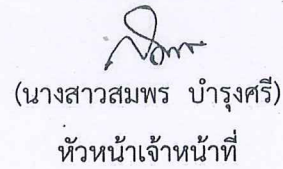 (นางสาวสมพร บำรุงศรี)
หัวหน้าเจ้าหน้าที่